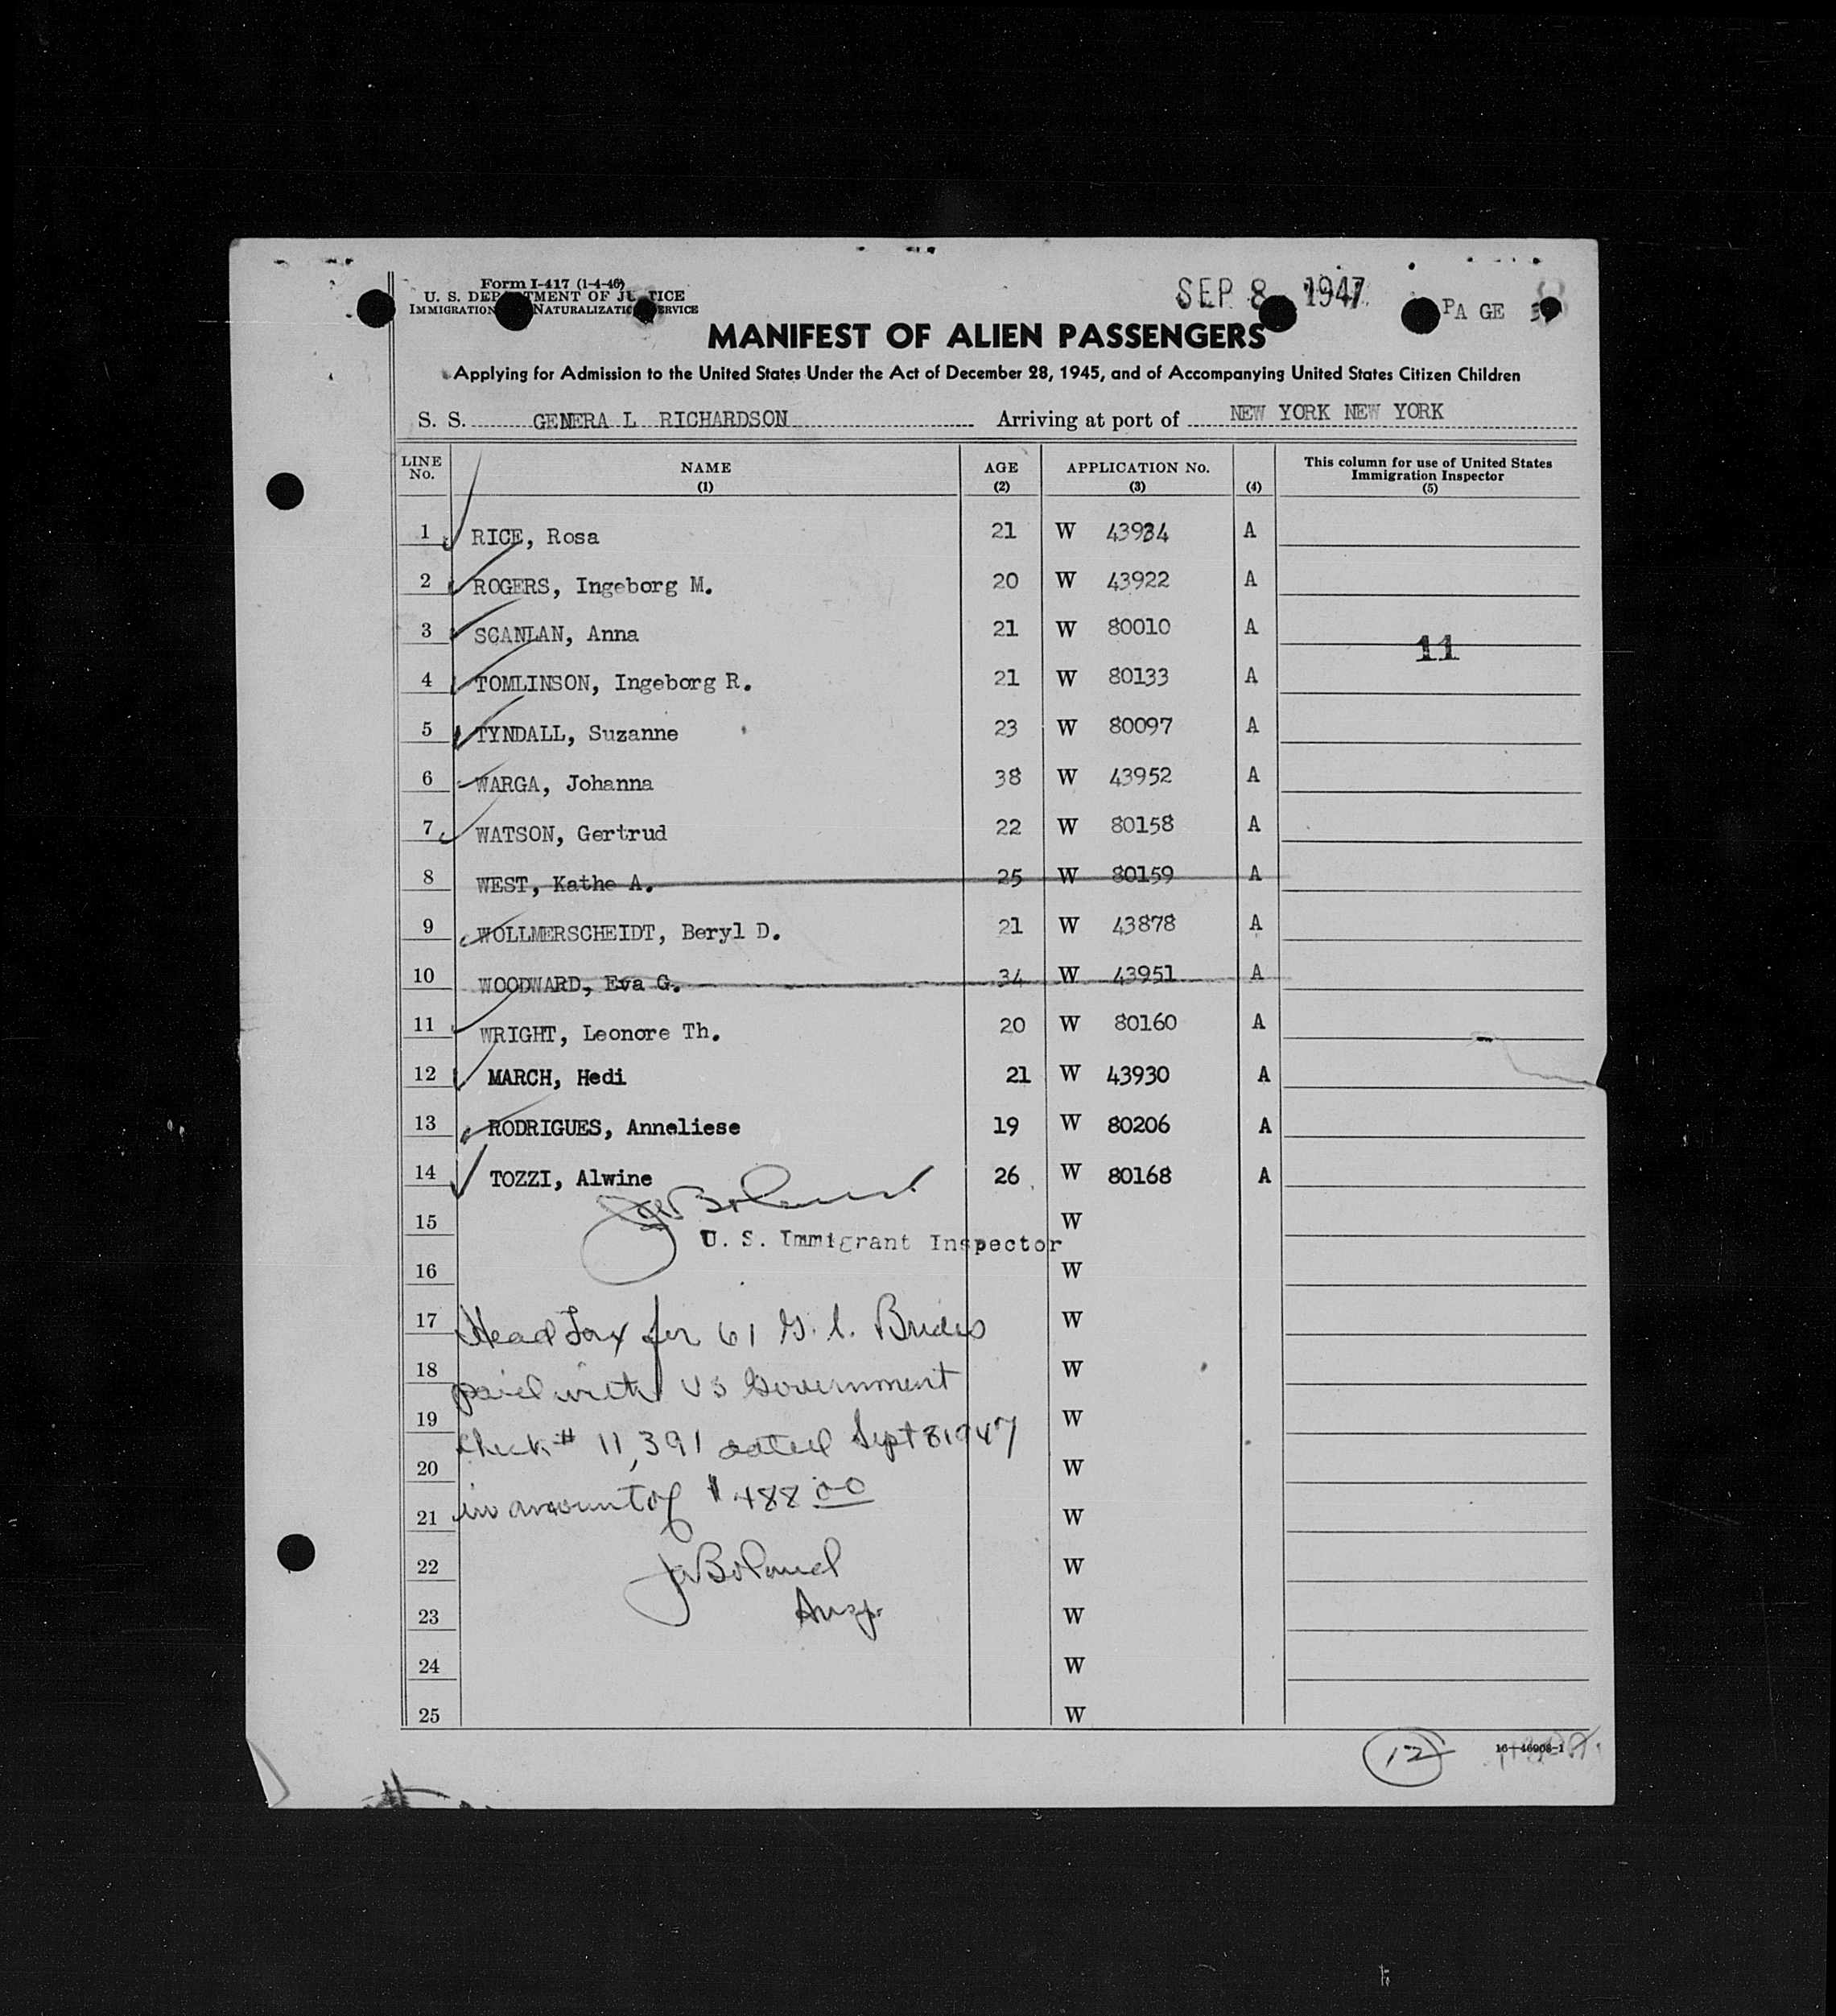 Form I-417 (1-4-46)
U. S. DEPARTMENT OF JUSTICE
IMMIGRATION NATURALIZATION SERVICE
SEP 8 1947
PA GE
MANIFEST OF ALIEN PASSENGERS
Applying for Admission to the United States Under the Act of December 28, 1945, and of Accompanying United States Citizen Children
S. S. GENERA L RICHARDSON Arriving at port of NEW YORK NEW YORK
LINE No. NAME (1) AGE (2) APPLICATION No. (3) (4) This column for use of United States Immigration Inspector (5)
1 RICE, Rosa 21 W 43934 A
2 ROGERS, Ingeborg M. 20 W 43922 A
3 SCANLAN, Anna 21 W 80010 A
11
4 TOMLINSON, Ingeborg R. 21 W 80133 A
5 TYNDALL, Suzanne 23 W 80097 A
6 WARGA, Johanna 38 W 43952 A
7 WATSON, Gertrud 22 W 80158 A
8 WEST, Kathe A. 25 W 80159 A
9 WOLLMERSCHEIDT, Beryl D. 21 W 43878 A
10 WOODWARD, Eva G. 34 W 43951 A
11 WRIGHT, Leonore Th. 20 W 80160 A
12 MARCH, Hedi 21 W 43930 A
13 RODRIGUES, Anneliese 19 W 80206 A
14 TOZZI, Alwine 26 W 80168 A
15 W
U. S. Immigrant Inspector
16 W
17 Head Tax for 61 G. I. Brides W
18 paid with US Government W
19 check # 11,391 dated Sept 8 1947 W
20 W
21 in amount of $488 00 W
22 W
23 W
24 W
25 W
12
16-46908-1